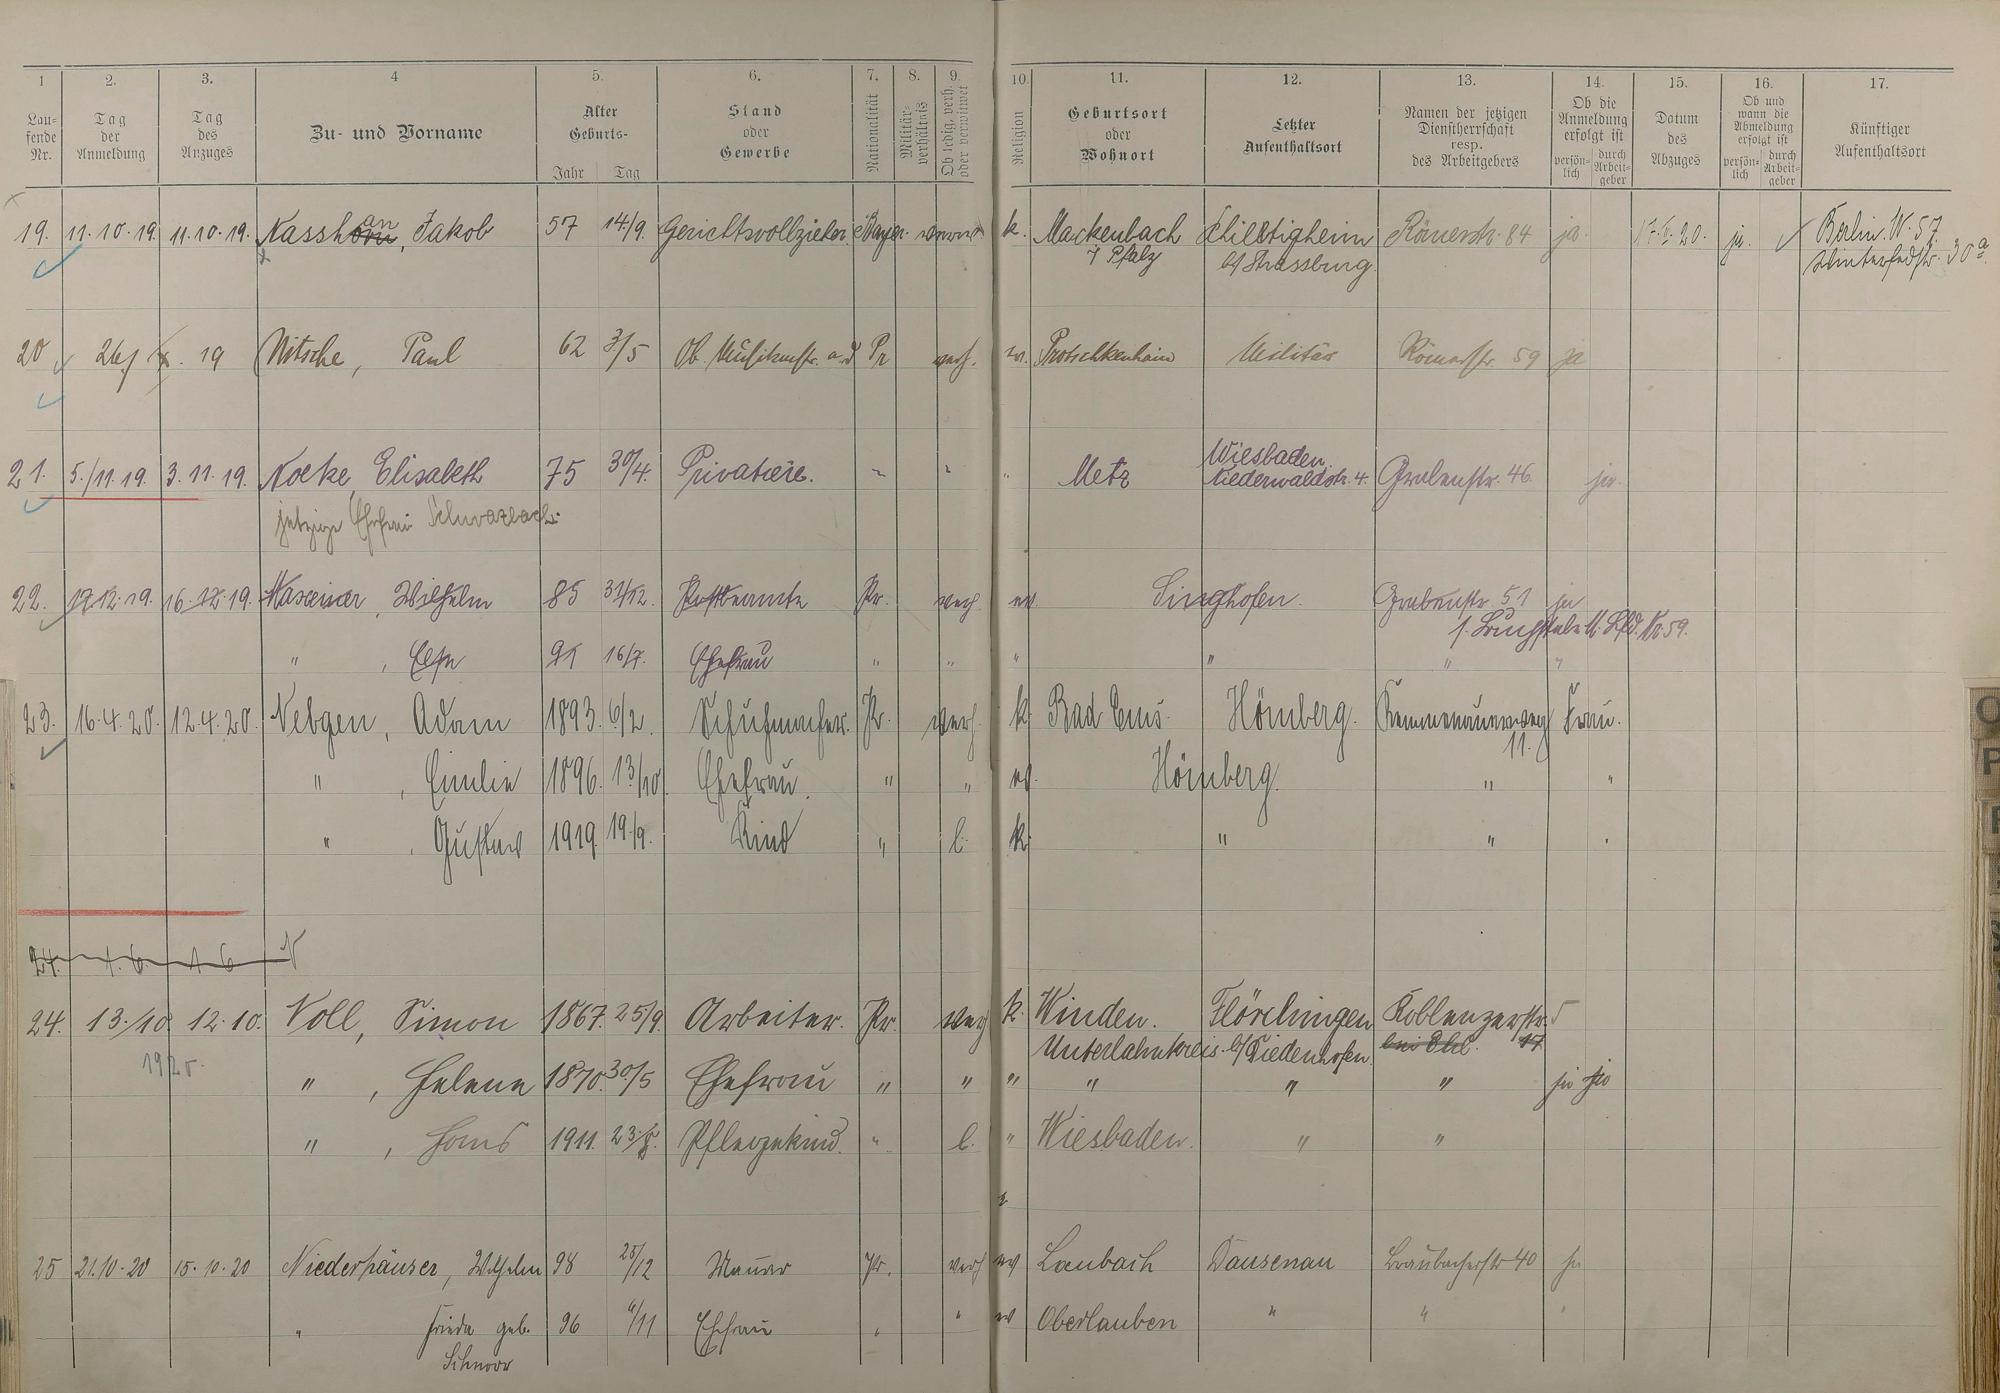 1 2. 3. 4 5. 6. 7. 8. 9. 10. 11. 12. 13. 14. 15. 16. 17.
Lau-fende Nr.
Tag der Anmeldung
Tag des Anzuges
Zu- und Vorname
Alter Geburts- Jahr Tag
Stand oder Gewerbe
Nationalität
Militär-verhältnis
Ob ledig, verh. oder verwitwet
Religion
Geburtsort oder Wohnort
Letzter Aufenthaltsort
Namen der jetzigen Dienstherrschaft resp. des Arbeitgebers
Ob die Anmeldung erfolgt ist persön-lich durch Arbeit-geber
Datum des Abzuges
Ob und wann die Abmeldung erfolgt ist persön-lich durch Arbeit-geber
Künftiger Aufenthaltsort
19. 11.10.19. 11.10.19. Nasshan, Jakob 57 14/9. Gerichtsvollzieher Bayer. k. Mackenbach Schiltigheim Römerstr. 84 ja. 20. ja. Berlin. W. 57.
Pfalz b/ Strassburg. Winterfedstr. 30a
20 26/ 19 Nitsche, Paul 62 3/5 Ob. a.d Pr verh. Militär Römerstr. 59 ja
21. 5./11.19. 3.11.19. Noeke Elisabeth 75 30/4. Privatiere. " " " Metz Wiesbaden Niederwaldstr. 4. Grabenstr. 46. ja.
jetzige Ehefrau
22. 12.19. 16.12.19. Wilhelm 85 Postbeamte Pr. verh. ev. Singhofen. Grabenstr. 51 ja
No 59.
" , 16/7. Ehefrau " " " " " "
23. 16.4.20. 12.4.20. Nebgen, Adam 1893. 6/2. Schuhmacher. Pr. verh. k. Bad Ems. Hömberg. Kemmenauerweg 11. Frau.
" , Emilie 1896. 13/10 Ehefrau. " " ev. Hömberg. " "
" , Gustav 1919. 19/9. Kind " l. k. " " "
24. N
24. 13./10. 12.10. Noll, Simon 1867. 25/9. Arbeiter. Pr. verh k. Winden. Flörchingen Koblenzerstr. 5
1920. Unterlahnkreis. b/ Diedenhofen 17
" , Helene 1870. 30/5 Ehefrau " " " " " " ja
" , Hans 1911. 23. Pflegekind. " l. " Wiesbaden. " "
25 21.10.20 15.10.20 Niederhäuser, Wilhelm 98 25/12 Maurer Pr. verh ev Laubach Dausenau Braubacherstr 40 ja
" Frieda geb. 96 /11 Ehefrau " " ev Oberlauben " " "
Schnorr